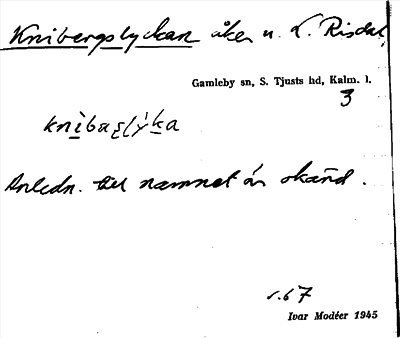 Knibergslyckan åker u. L. Risdal,
Gamleby sn, S. Tjusts hd, Kalm. l.
3
Anledn. till namnet är okänd.
s. 67
Ivar Modéer 1945